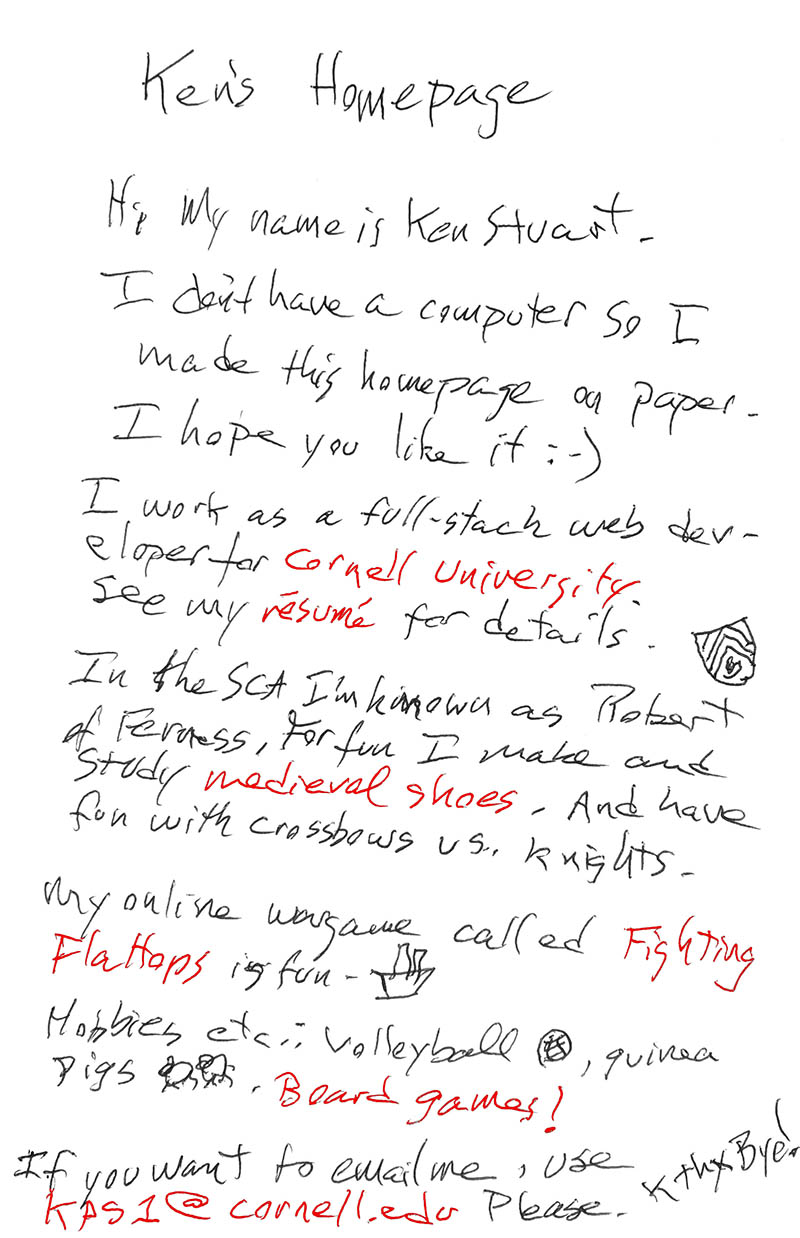 Ken's Homepage
Hi My name is Ken Stuart.
I don't have a computer so I
made this homepage on paper.
I hope you like it :-)
I work as a full-stack web dev-
eloper for Cornell University.
See my résumé for details.
In the SCA I'm known as Robert
of Ferness, For fun I make and
study medieval shoes. And have
fun with crossbows vs. knights.
My online wargame called Fighting
Flattops is fun-
Hobbies etc.: Volleyball, guinea
pigs. Board games!
If you want to email me, use
kps1@cornell.edu Please.
KthxBye!